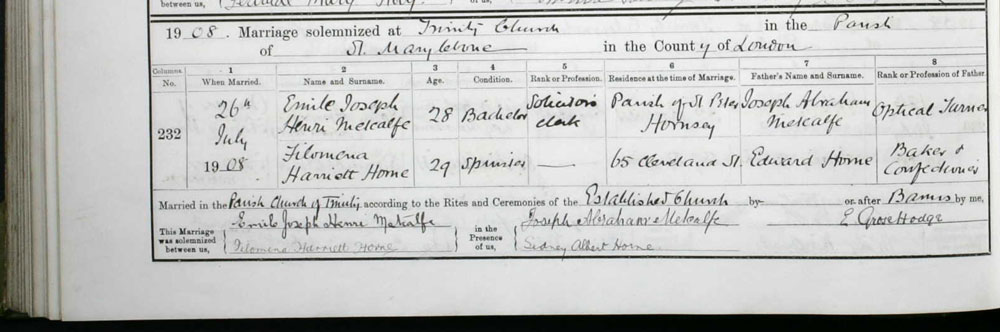 between us,
of us,
1908. Marriage solemnized at Trinity Church in the Parish
of St. Marylebone in the County of London
Columns 1 2 3 4 5 6 7 8
No. When Married. Name and Surname. Age. Condition. Rank or Profession. Residence at the time of Marriage. Father's Name and Surname. Rank or Profession of Father.
26th Emile Joseph Solicitors Parish of St Peter Joseph Abraham
232 July Henri Metcalfe 28 Bachelor clerk Hornsey Metcalfe Optical Turner
1908 Filomena Harriett Horne 29 Spinster — 65 Cleveland St. Edward Horne Baker & Confectioner
Married in the Parish Church of Trinity according to the Rites and Ceremonies of the Established Church by or after Banns by me,
This Marriage was solemnized between us, Emile Joseph Henri Metcalfe in the Presence of us, Joseph Abraham Metcalfe E Grose Hodge
Filomena Harriett Horne Sidney Albert Horne